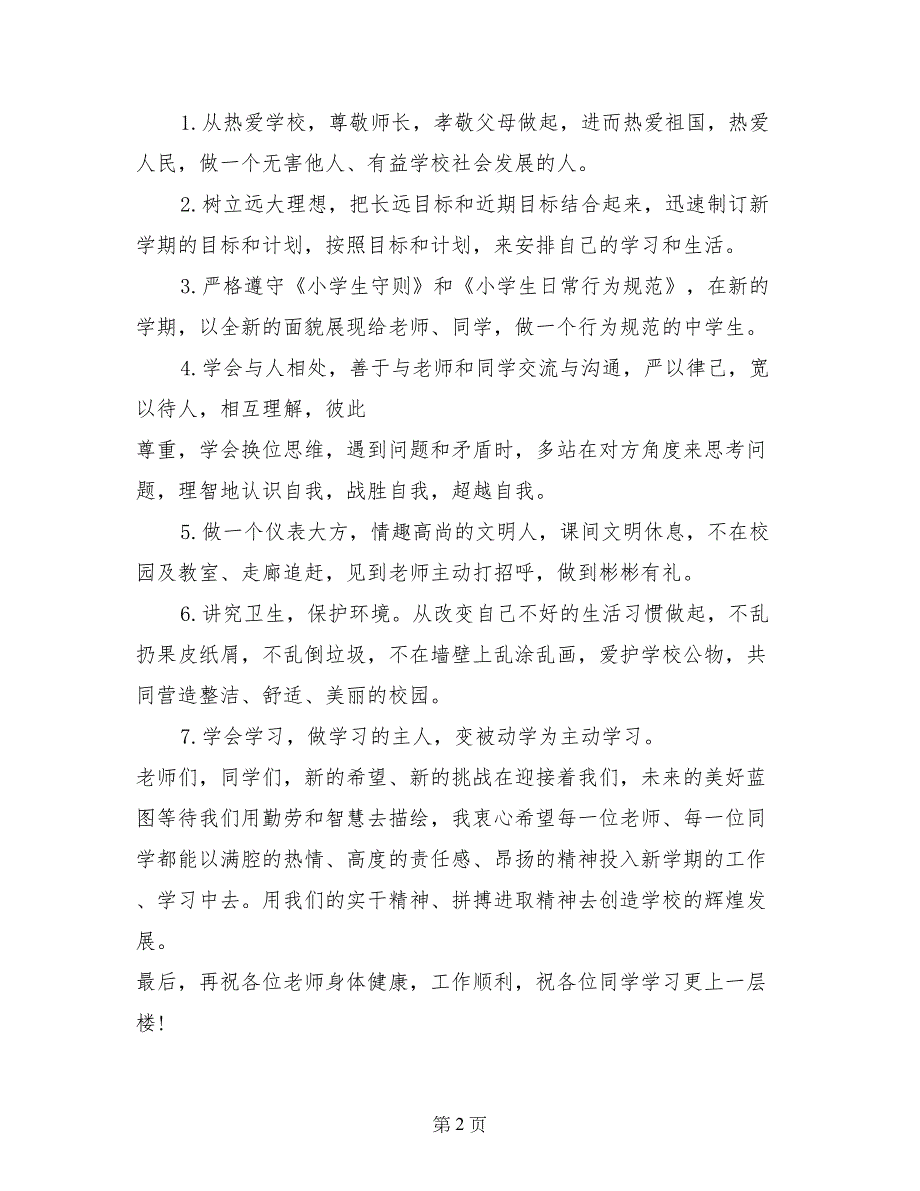 1.从热爱学校，尊敬师长，孝敬父母做起，进而热爱祖国，热爱
人民，做一个无害他人、有益学校社会发展的人。
2.树立远大理想，把长远目标和近期目标结合起来，迅速制订新
学期的目标和计划，按照目标和计划，来安排自己的学习和生活。
3.严格遵守《小学生守则》和《小学生日常行为规范》，在新的
学期，以全新的面貌展现给老师、同学，做一个行为规范的中学生。
4.学会与人相处，善于与老师和同学交流与沟通，严以律己，宽
以待人，相互理解，彼此
尊重，学会换位思维，遇到问题和矛盾时，多站在对方角度来思考问
题，理智地认识自我，战胜自我，超越自我。
5.做一个仪表大方，情趣高尚的文明人，课间文明休息，不在校
园及教室、走廊追赶，见到老师主动打招呼，做到彬彬有礼。
6.讲究卫生，保护环境。从改变自己不好的生活习惯做起，不乱
扔果皮纸屑，不乱倒垃圾，不在墙壁上乱涂乱画，爱护学校公物，共
同营造整洁、舒适、美丽的校园。
7.学会学习，做学习的主人，变被动学为主动学习。
老师们，同学们，新的希望、新的挑战在迎接着我们，未来的美好蓝
图等待我们用勤劳和智慧去描绘，我衷心希望每一位老师、每一位同
学都能以满腔的热情、高度的责任感、昂扬的精神投入新学期的工作
、学习中去。用我们的实干精神、拼搏进取精神去创造学校的辉煌发
展。
最后，再祝各位老师身体健康，工作顺利，祝各位同学学习更上一层
楼!
第 2 页